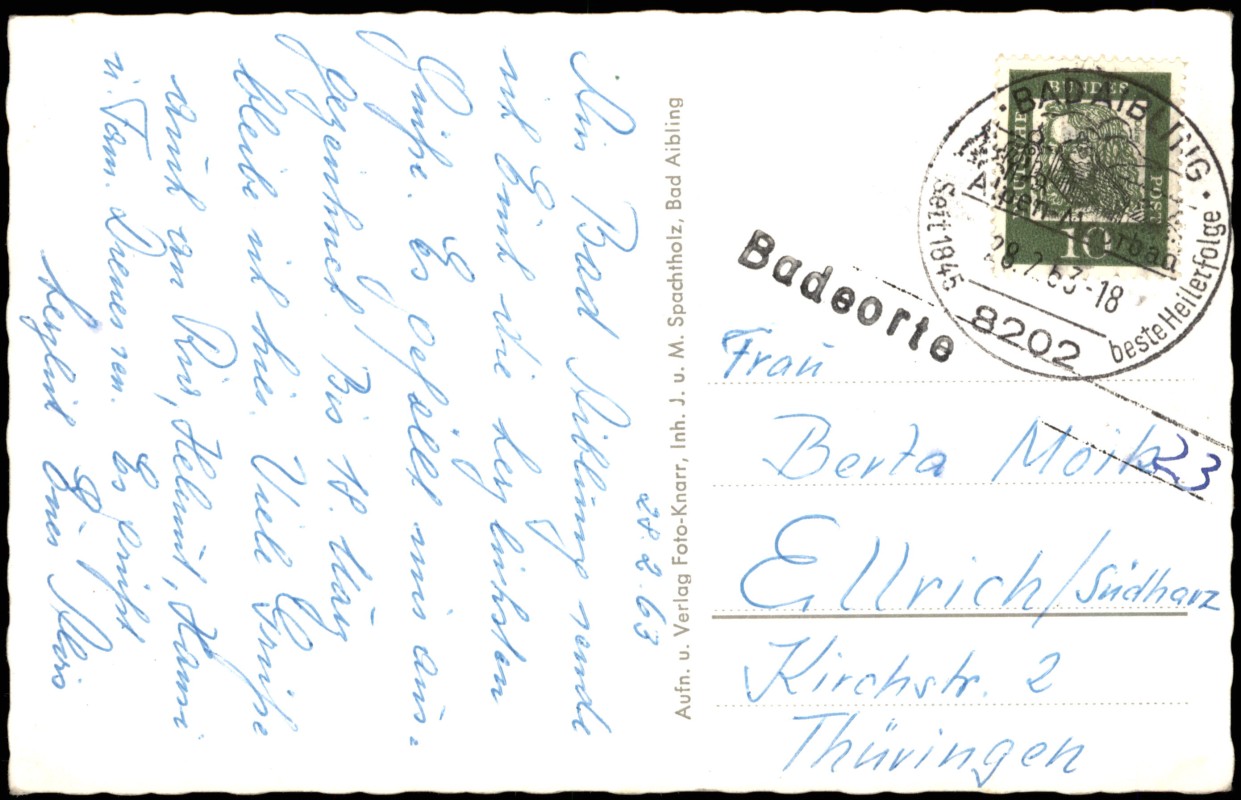 28.2.63
Aus Bad Aibling sende
ich Euch die herzlichsten
Grüße. Es gefällt mir aus-
gezeichnet! Bis 18. März
bleibe ich hier. Viele Grüße
auch an Rud, Helmut, Hanni
u. Fam. Es grüßt
herzlich Eure
Aufn. u. Verlag Foto-Knarr, Inh. J. u. M. Spachtholz, Bad Aibling
BUNDES
POST
10
· BAD AIBLING ·
28.2.63-18
Seit 1845
beste Heilerfolge
8202
Badeorte
Frau
Berta Moik
23
Ellrich/Südharz
Kirchstr. 2
Thüringen